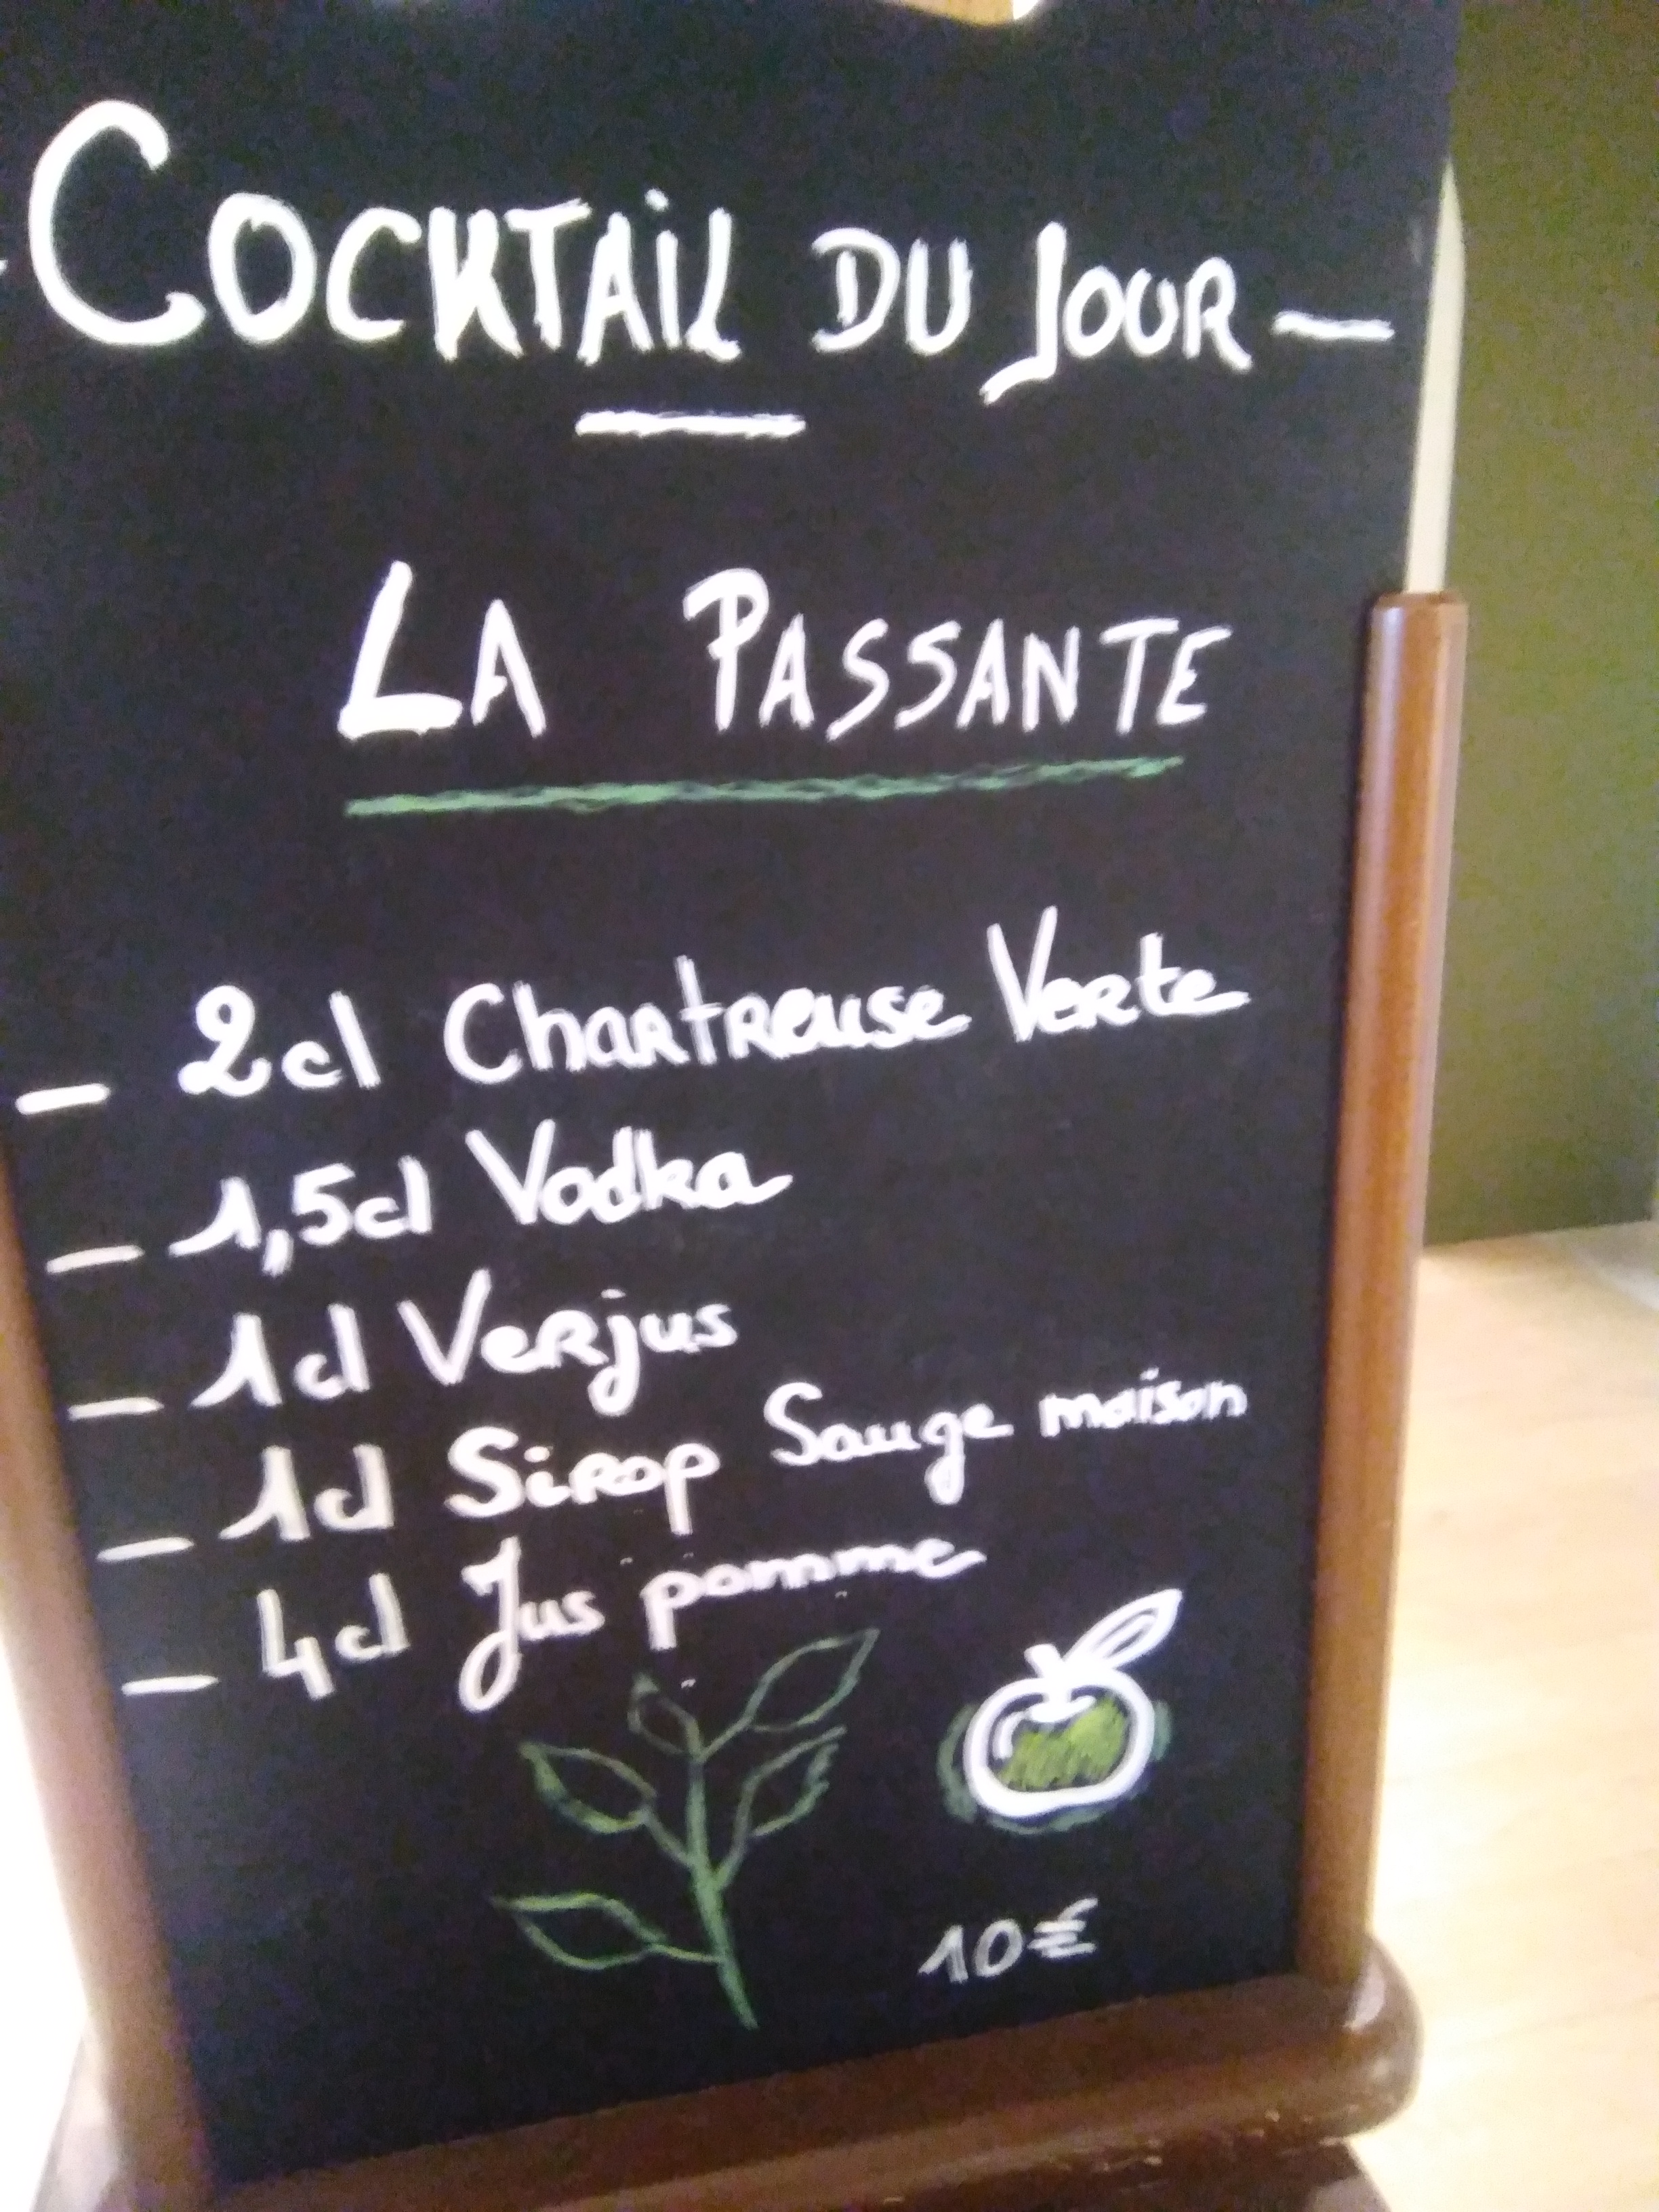 - COCKTAIL DU JOUR -
LA PASSANTE
- 2cl Chartreuse Verte
- 1,5cl Vodka
- 1cl Verjus
- 1cl Sirop Sauge maison
- 4cl Jus pomme
10€